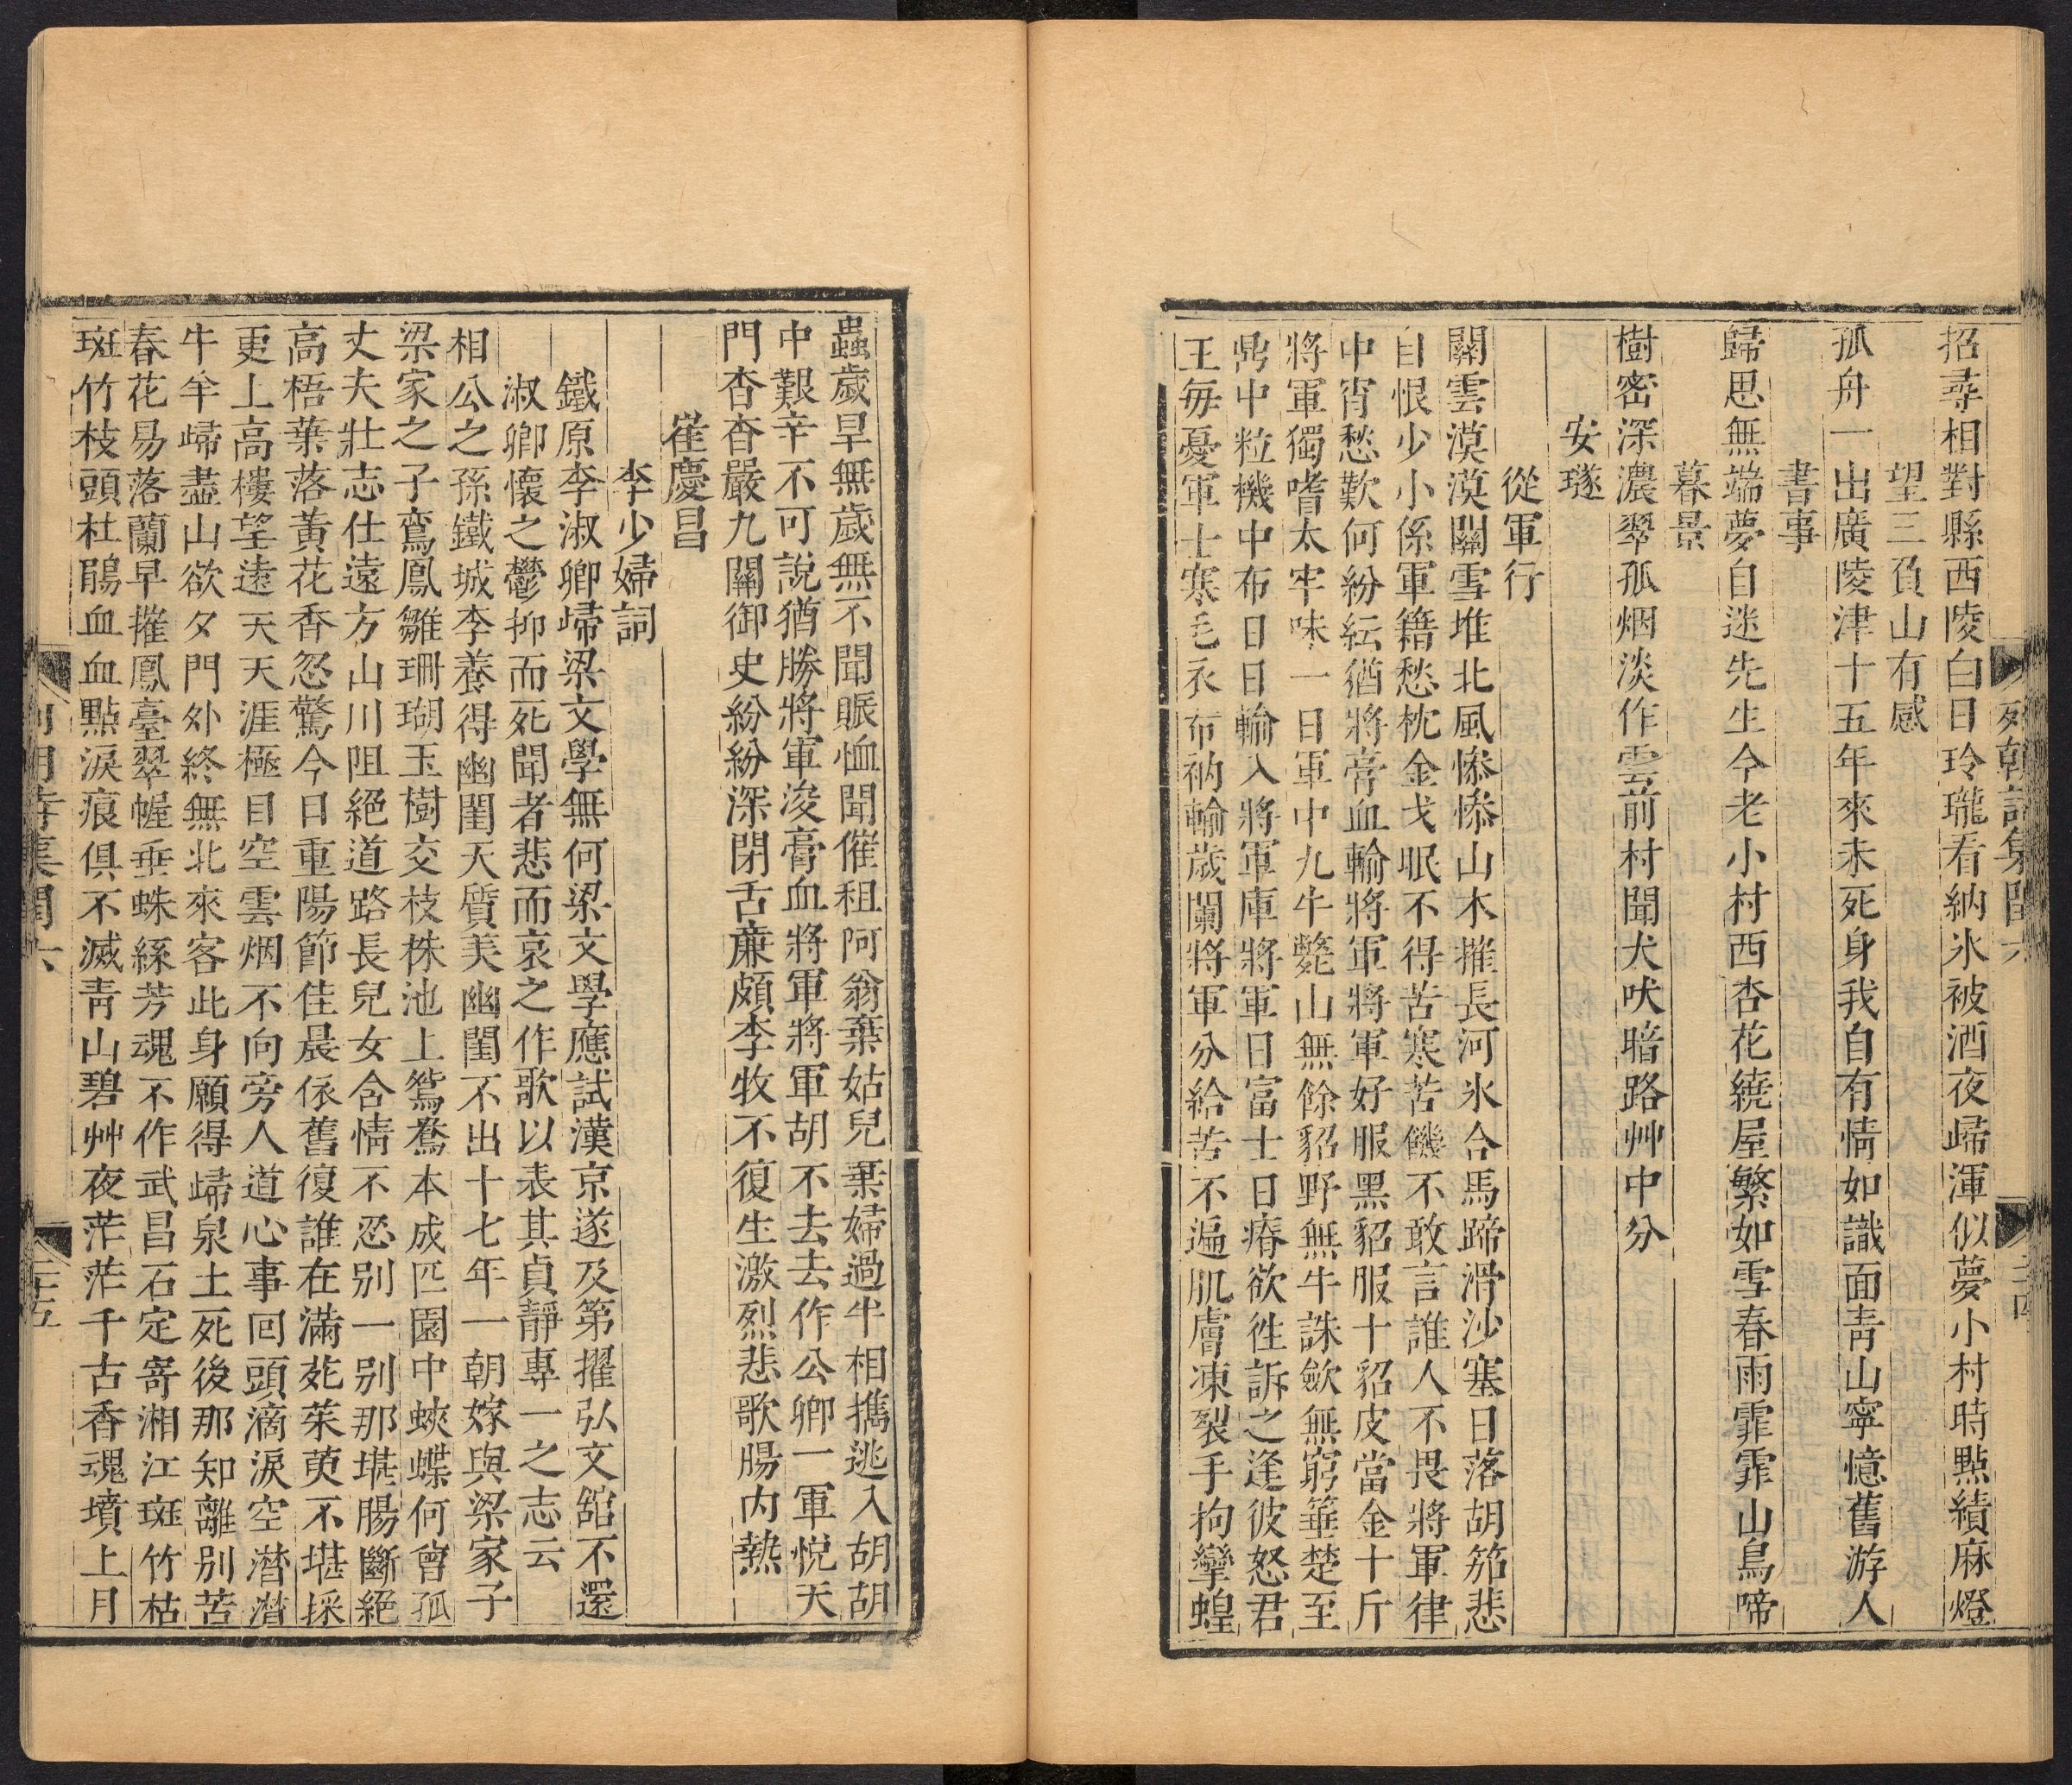 招尋相對縣西陵白日玲瓏看納氷被酒夜歸渾似夢小村時點績麻燈
望三角山有感
孤舟一出廣陵津十五年來未死身我自有情如識面靑山寧憶舊游人
書事
歸思無端夢自迷先生今老小村西杏花繞屋繁如雪春雨霏霏山鳥啼
暮景
樹密深濃翠孤烟淡作雲前村聞犬吠暗路艸中分
安璲
從軍行
關雲漠漠關雪堆北風慘慘山木摧長河氷合馬蹄滑沙塞日落胡笳悲
自恨少小係軍籍愁枕金戈眠不得苦寒苦饑不敢言誰人不畏將軍律
中宵愁歎何紛紜猶將膏血輸將軍將軍好服黑貂服十貂皮當金十斤
將軍獨嗜太牢味一日軍中九牛斃山無餘貂野無牛誅歛無窮箠楚至
鼎中粒機中布日日輸入將軍庫將軍日富士日瘠欲徃訴之逢彼怒君
王每憂軍士寒毛衣布衲輸歲闌將軍分給苦不遍肌膚凍裂手拘攣蝗
蟲歲旱無歲無不聞賑恤聞催租阿翁棄姑兒棄婦過半相擕逃入胡胡
中艱辛不可說猶勝將軍浚膏血將軍將軍胡不去去作公卿一軍悅天
門杳杳嚴九關御史紛紛深閉舌廉頗李牧不復生激烈悲歌腸內熱
崔慶昌
李少婦詞
鐵原李淑卿歸梁文學無何梁文學應試漢京遂及第擢弘文舘不還
淑卿懷之鬱抑而死聞者悲而哀之作歌以表其貞靜專一之志云
相公之孫鐵城李養得幽閨天質美幽閨不出十七年一朝嫁與梁家子
梁家之子鸞鳳雛珊瑚玉樹交枝株池上鴛鴦本成匹園中蛺蝶何曾孤
丈夫壯志仕遠方山川阻絕道路長兒女含情不忍别一别那堪腸斷絕
高梧葉落黃花香忽驚今日重陽節佳晨依舊復誰在滿苑茱萸不堪採
更上高樓望遠天天涯極目空雲烟不向旁人道心事回頭滴淚空潸潸
牛羊歸盡山欲夕門外終無北來客此身願得歸泉土死後那知離別苦
春花易落蘭早摧鳳臺翠幄垂蛛絲芳魂不作武昌石定寄湘江斑竹枯
斑竹枝頭杜鵑血血點淚痕俱不滅靑山碧艸夜茫茫千古香魂墳上月